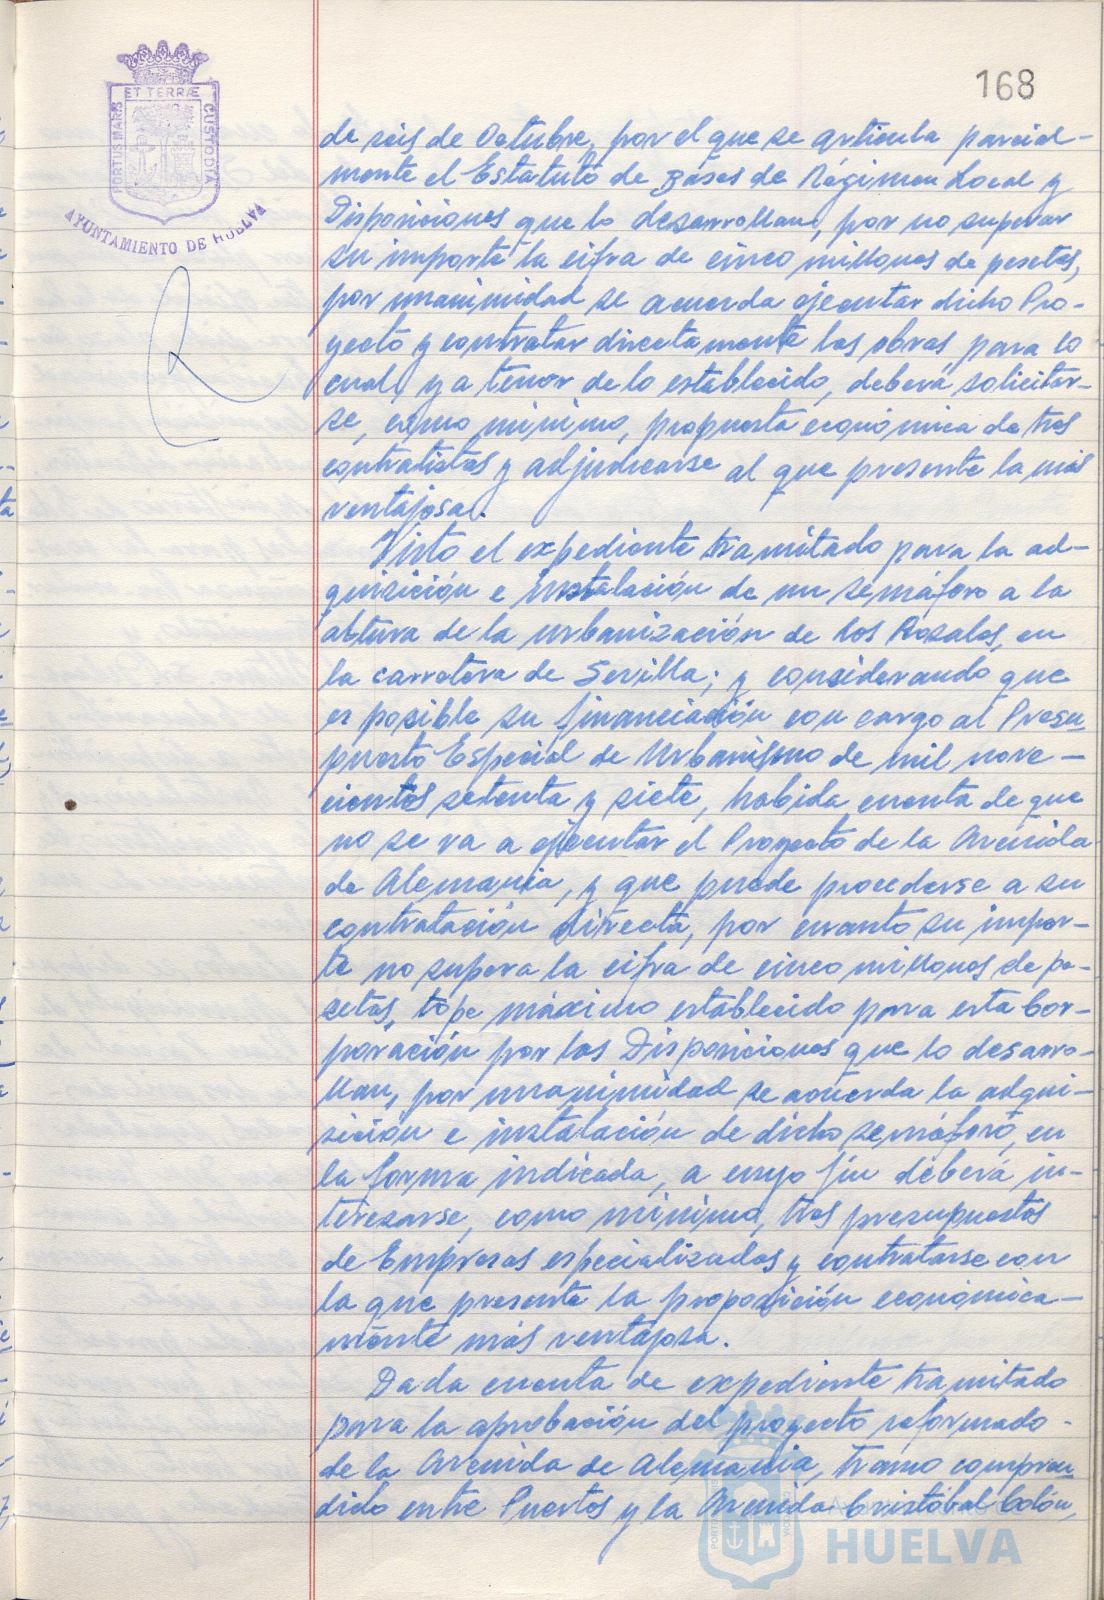 168
PORTUS MARIS ET TERRÆ CUSTODIA
AYUNTAMIENTO DE HUELVA
de seis de Octubre, por el que se articula parcial-
mente el Estatuto de Bases de Régimen Local y
Disposiciones que lo desarrollan, por no superar
su importe la cifra de cinco millones de pesetas,
por unanimidad se acuerda ejecutar dicho Pro-
yecto y contratar directamente las obras para lo
cual, y a tenor de lo establecido, deberá solicitar-
se, como mínimo, propuesta económica de tres
contratistas y adjudicarse al que presente la más
ventajosa.
Visto el expediente tramitado para la ad-
quisición e instalación de un semáforo a la
altura de la urbanización de los Rosales, en
la carretera de Sevilla; y considerando que
es posible su financiación con cargo al Presu
puesto Especial de Urbanismo de mil nove-
cientos setenta y siete, habida cuenta de que
no se va a ejecutar el Proyecto de la Avenida
de Alemania, y que puede procederse a su
contratación directa, por cuanto su impor-
te no supera la cifra de cinco millones de pe-
setas, tope máximo establecido para esta Cor-
poración por las Disposiciones que lo desarro-
llan, por unanimidad se acuerda la adqui-
sición e instalación de dicho semáforo, en
la forma indicada, a cuyo fin deberá in-
teresarse, como mínimo, tres presupuestos
de Empresas especializadas y contratarse con
la que presente la proposición económica-
mente más ventajosa.
Dada cuenta de expediente tramitado
para la aprobación del proyecto reformado
de la Avenida de Alemania, tramo compren
dido entre Puertos y la Avenida Cristóbal Colón,
HUELVA